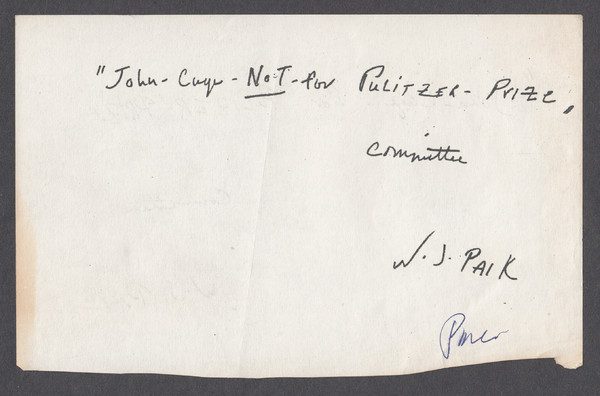 "John-Cage-NOT-for PULITZER-PRIZE„
Committee
N.J. PAIK